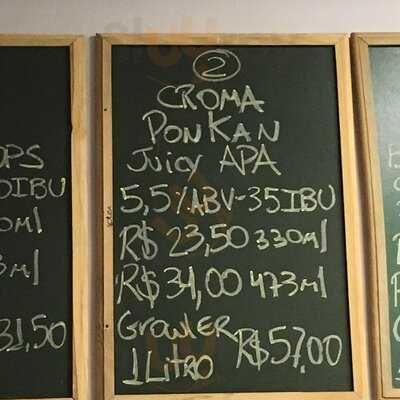 2
CROMA
PONKAN
Juicy APA
5,5%ABV-35IBU
R$ 23,50 330ml
R$ 34,00 473ml
GROWLER
1 LITRO R$57,00
OPS
0IBU
0ml
3ml
31,50